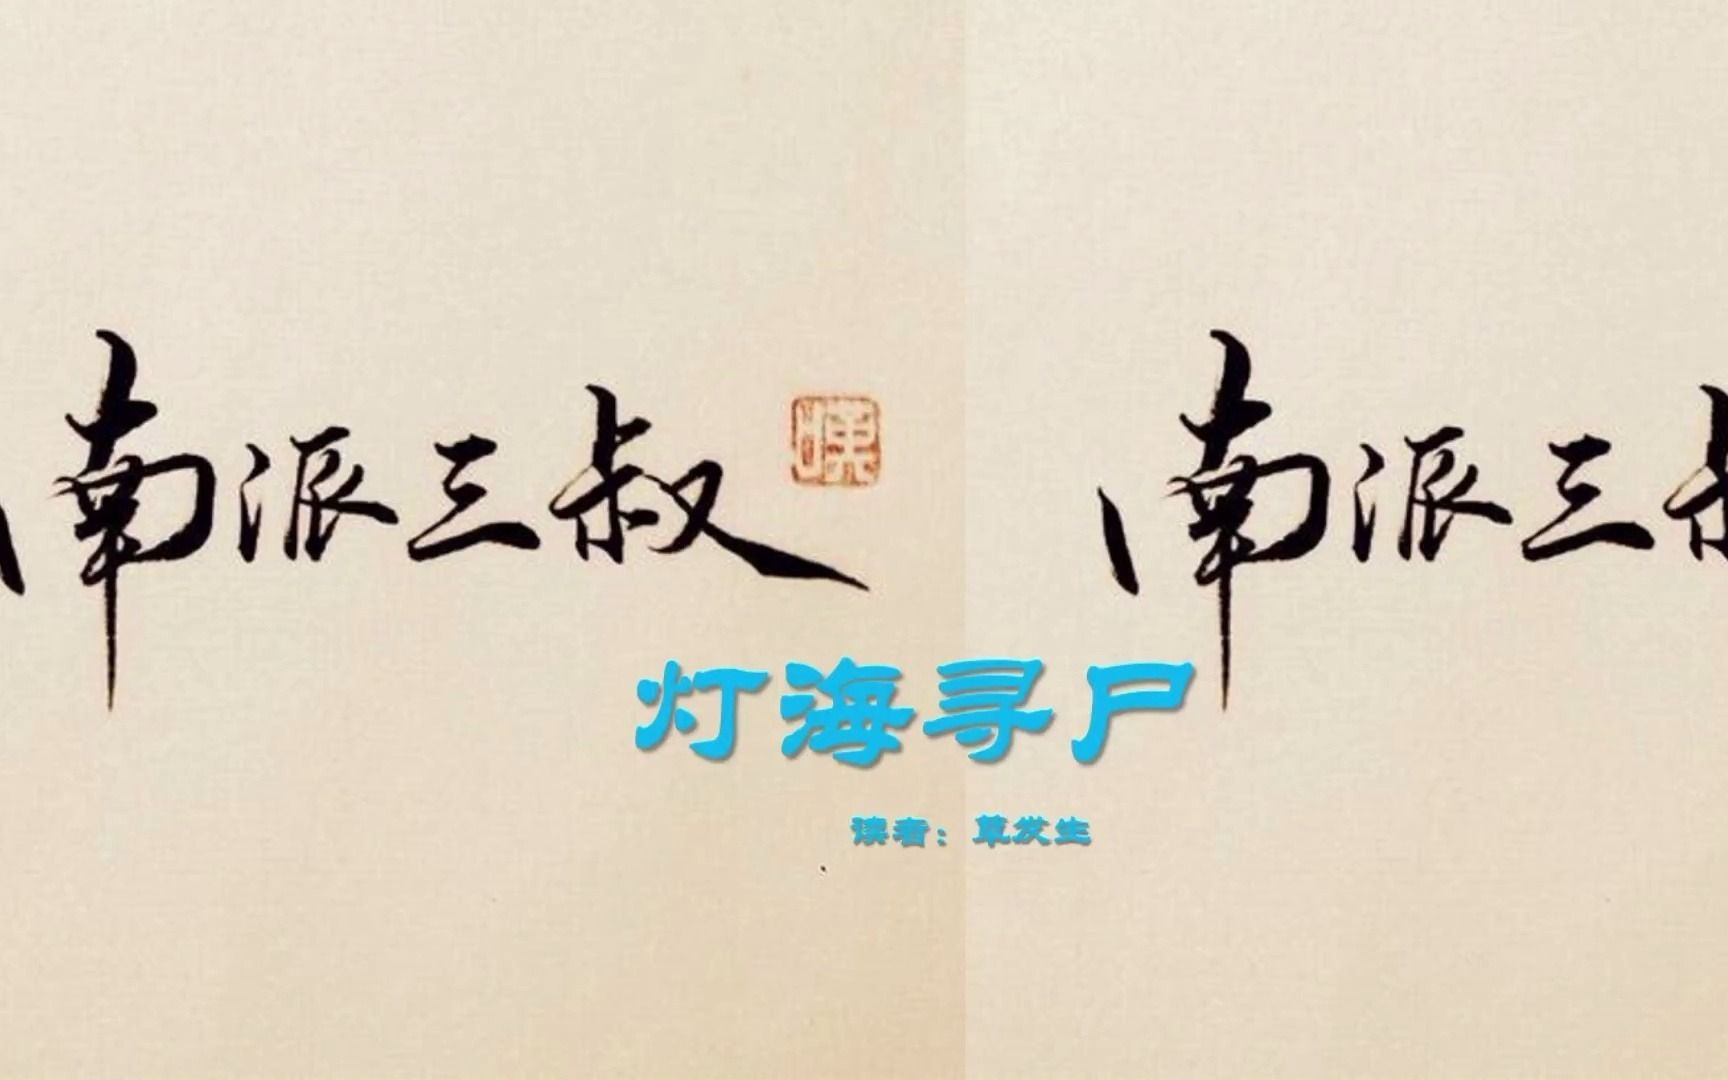 南派三叔
南派三
灯海寻尸
读者：草发生